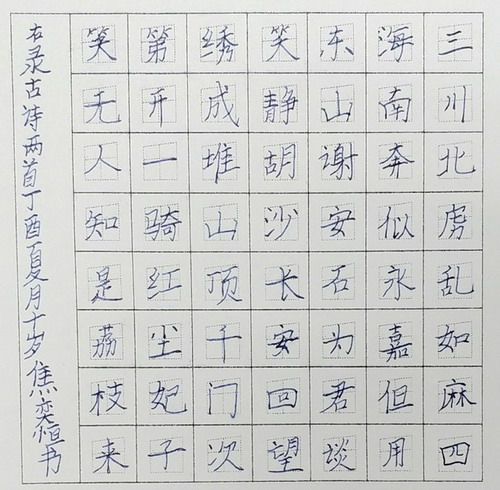 三川北虏乱如麻四
海南奔似永嘉但用
东山谢安石为君谈
笑静胡沙长安回望
绣成堆山顶千门次
第开一骑红尘妃子
笑无人知是荔枝来
右录古诗两首丁酉夏月十岁焦奕恒书